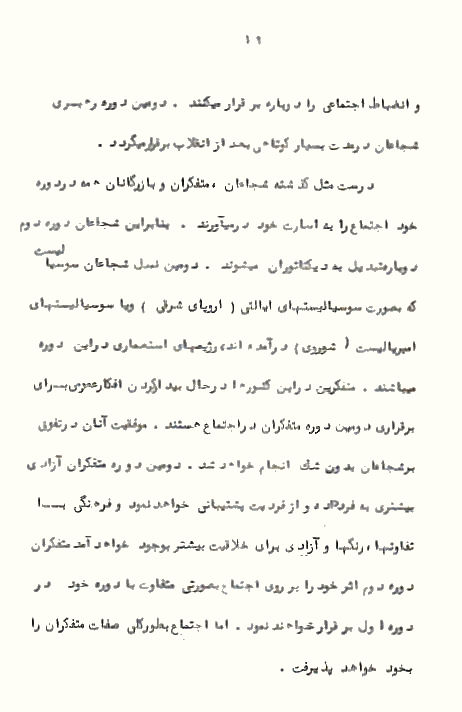 ۱۹
و انضباط اجتماعی را دوباره برقرار میکنند . دومین دوره رهبری
شجاعان در مدت بسیار کوتاهی بعد از انقلاب برقرار میگردد .
درست مثل گذشته شجاعان ، متفکران و بازرگانان همه در دوره
خود اجتماع را به اسارت خود درمیآورند . بنابراین شجاعان دوره دوم
دوباره تبدیل به دیکتاتوران میشوند . دومین نسل شجاعان سوسیالیست
که بصورت سوسیالیستهای ایالتی ( اروپای شرقی ) ویا سوسیالیستهای
امپریالیست ( شوروی ) درآمده اند، رژیمهای استعماری دراین دوره
میباشند . متفکرین دراین کشورها درحال بیدار کردن افکار عمومی برای
برقراری دومین دوره متفکران در اجتماع هستند . موفقیت آنان در تفوق
بر شجاعان بدون شک انجام خواهد شد . دومین دوره متفکران آزادی
بیشتری به فرد داده و از فردیت پشتیبانی خواهد نمود و فرهنگی با
تفاوتها ، رنگها و آزادی برای خلاقیت بیشتر بوجود خواهد آمد متفکران
دوره دوم اثر خود را بر روی اجتماع بصورتی متفاوت با دوره خود در
دوره اول برقرار خواهند نمود . اما اجتماع بطورکلی صفات متفکران را
بخود خواهد پذیرفت .